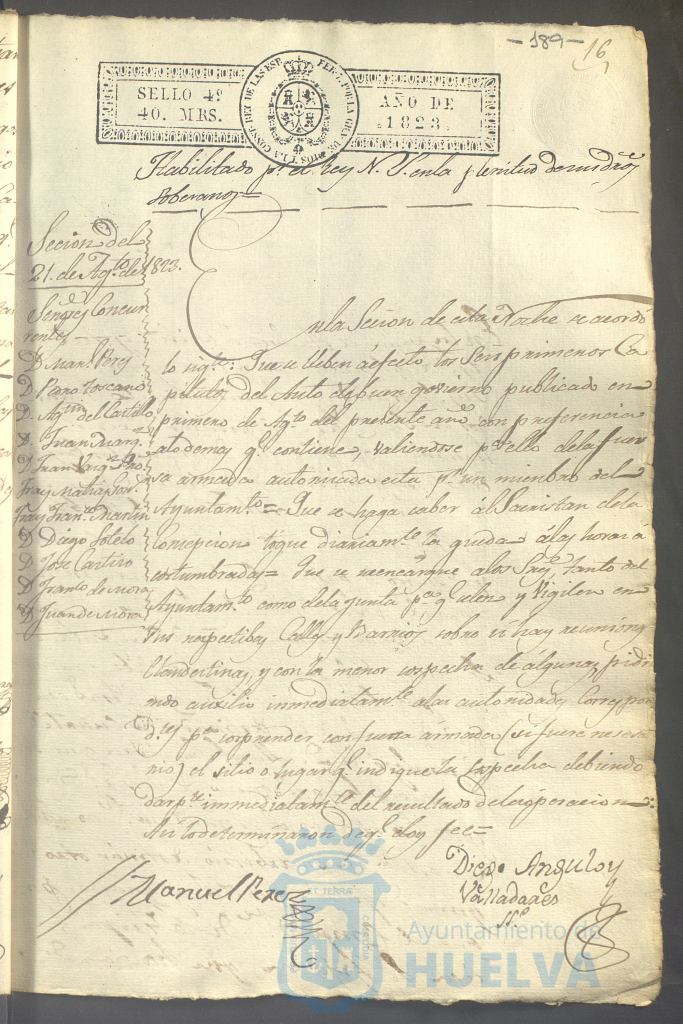 - 189 -
16
SELLO 4º
40. MRS.
FER. 7. POR LA G. DE DIOS Y LA CONST. REY DE LAS ESP.
AÑO DE
1823.
Habilitado pr. el Rey N. S. en la plenitud de sus dros
soberanos=
Sección del
21. de Agto. de 1823.
Señores Concur
rentes
D. Manl. Perez
D. Pedro Toscano
D. Agtin del Castillo
D. Juan Marq.
D. Juan
Fray Matias
Fray Franco. Martin
D. Diego Toledo
D. Jose Cartiro
D. Franco. de Mora
D. Juan de Mora
En la Seción de esta Noche se acordó
lo sigte.: Que se lleben á efecto los Seis primeros Ca
pitulos del Auto de buen govierno publicado en
primero de Agto. del presente año, con preferencia
a lo demas q. contiene, valiendose para ello de la fuer
sa armada autorizada esta pr. un miembro del
Ayuntamto.= Que se haga saber ál Sacristan de la
Concepcion toque diariamte. la queda á las horas á
costumbradas= Que se reencargue a los Sres. tanto del
Ayuntamto. como de la junta pa. q. zelen y Vigilen en
sus respectibas Calles y Barrios sobre si hay reuniones
Clandestinas, y con la menor sospecha de álgunas, pidi
endo auxilio inmediatamte. a las autoridades Correspon
dtes. pa. sorprender con fuerza armada (si fuere nesesa
rio) el sitio o lugar q. indique la sospecha debiendo
dar pte. inmediatamte. del resultado de la operacion:
Asi lo determinaron de q. doy fee=
Manuel Perez
Diego Angulo y
Valladares
Ayuntamiento de
HUELVA